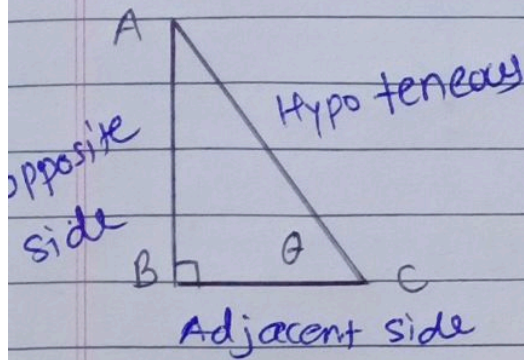 A
Hypoteneous
opposite
side
θ
B
C
Adjacent side